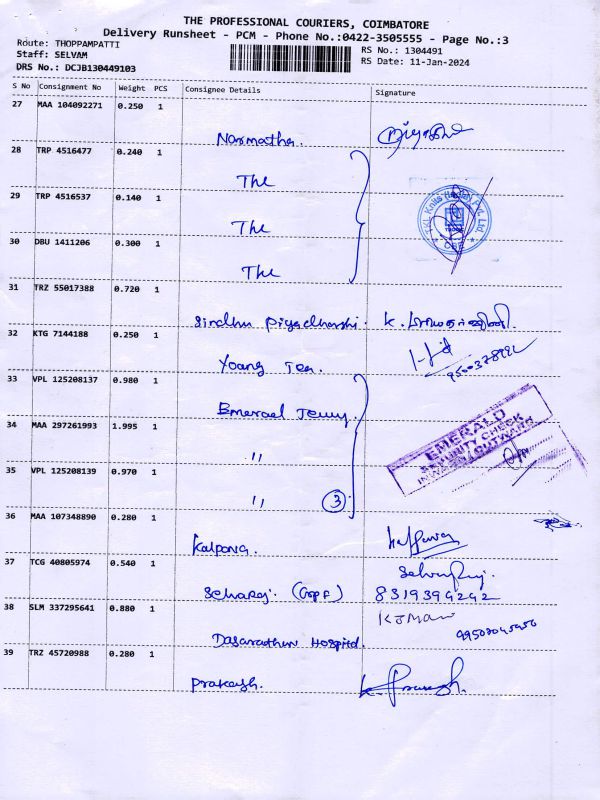 THE PROFESSIONAL COURIERS, COIMBATORE
Delivery Runsheet - PCM - Phone No.:0422-3505555 - Page No.:3
Route: THOPPAMPATTI
RS No.: 1304491
Staff: SELVAM
RS Date: 11-Jan-2024
DRS No.: DCJB130449103
S No Consignment No Weight PCS Consignee Details Signature
27 MAA 104092271 0.250 1
Narmatha.
28 TRP 4516477 0.240 1
The
29 TRP 4516537 0.140 1
The
30 DBU 1411206 0.300 1
The
31 TRZ 55017388 0.720 1
Sindhu Piyadharshi. K.
32 KTG 7144188 0.250 1
Young Tea.
33 VPL 125208137 0.980 1
Emerael Jewry.
34 MAA 297261993 1.995 1
"
EMERALD
SECURITY CHECK
35 VPL 125208139 0.970 1
" 3
36 MAA 107348890 0.280 1
Kalpana.
37 TCG 40805974 0.540 1
Selvaraj.
8319394242
38 SLM 337295641 0.880 1
Dasarathan Hospital.
39 TRZ 45720988 0.280 1
Prakash.